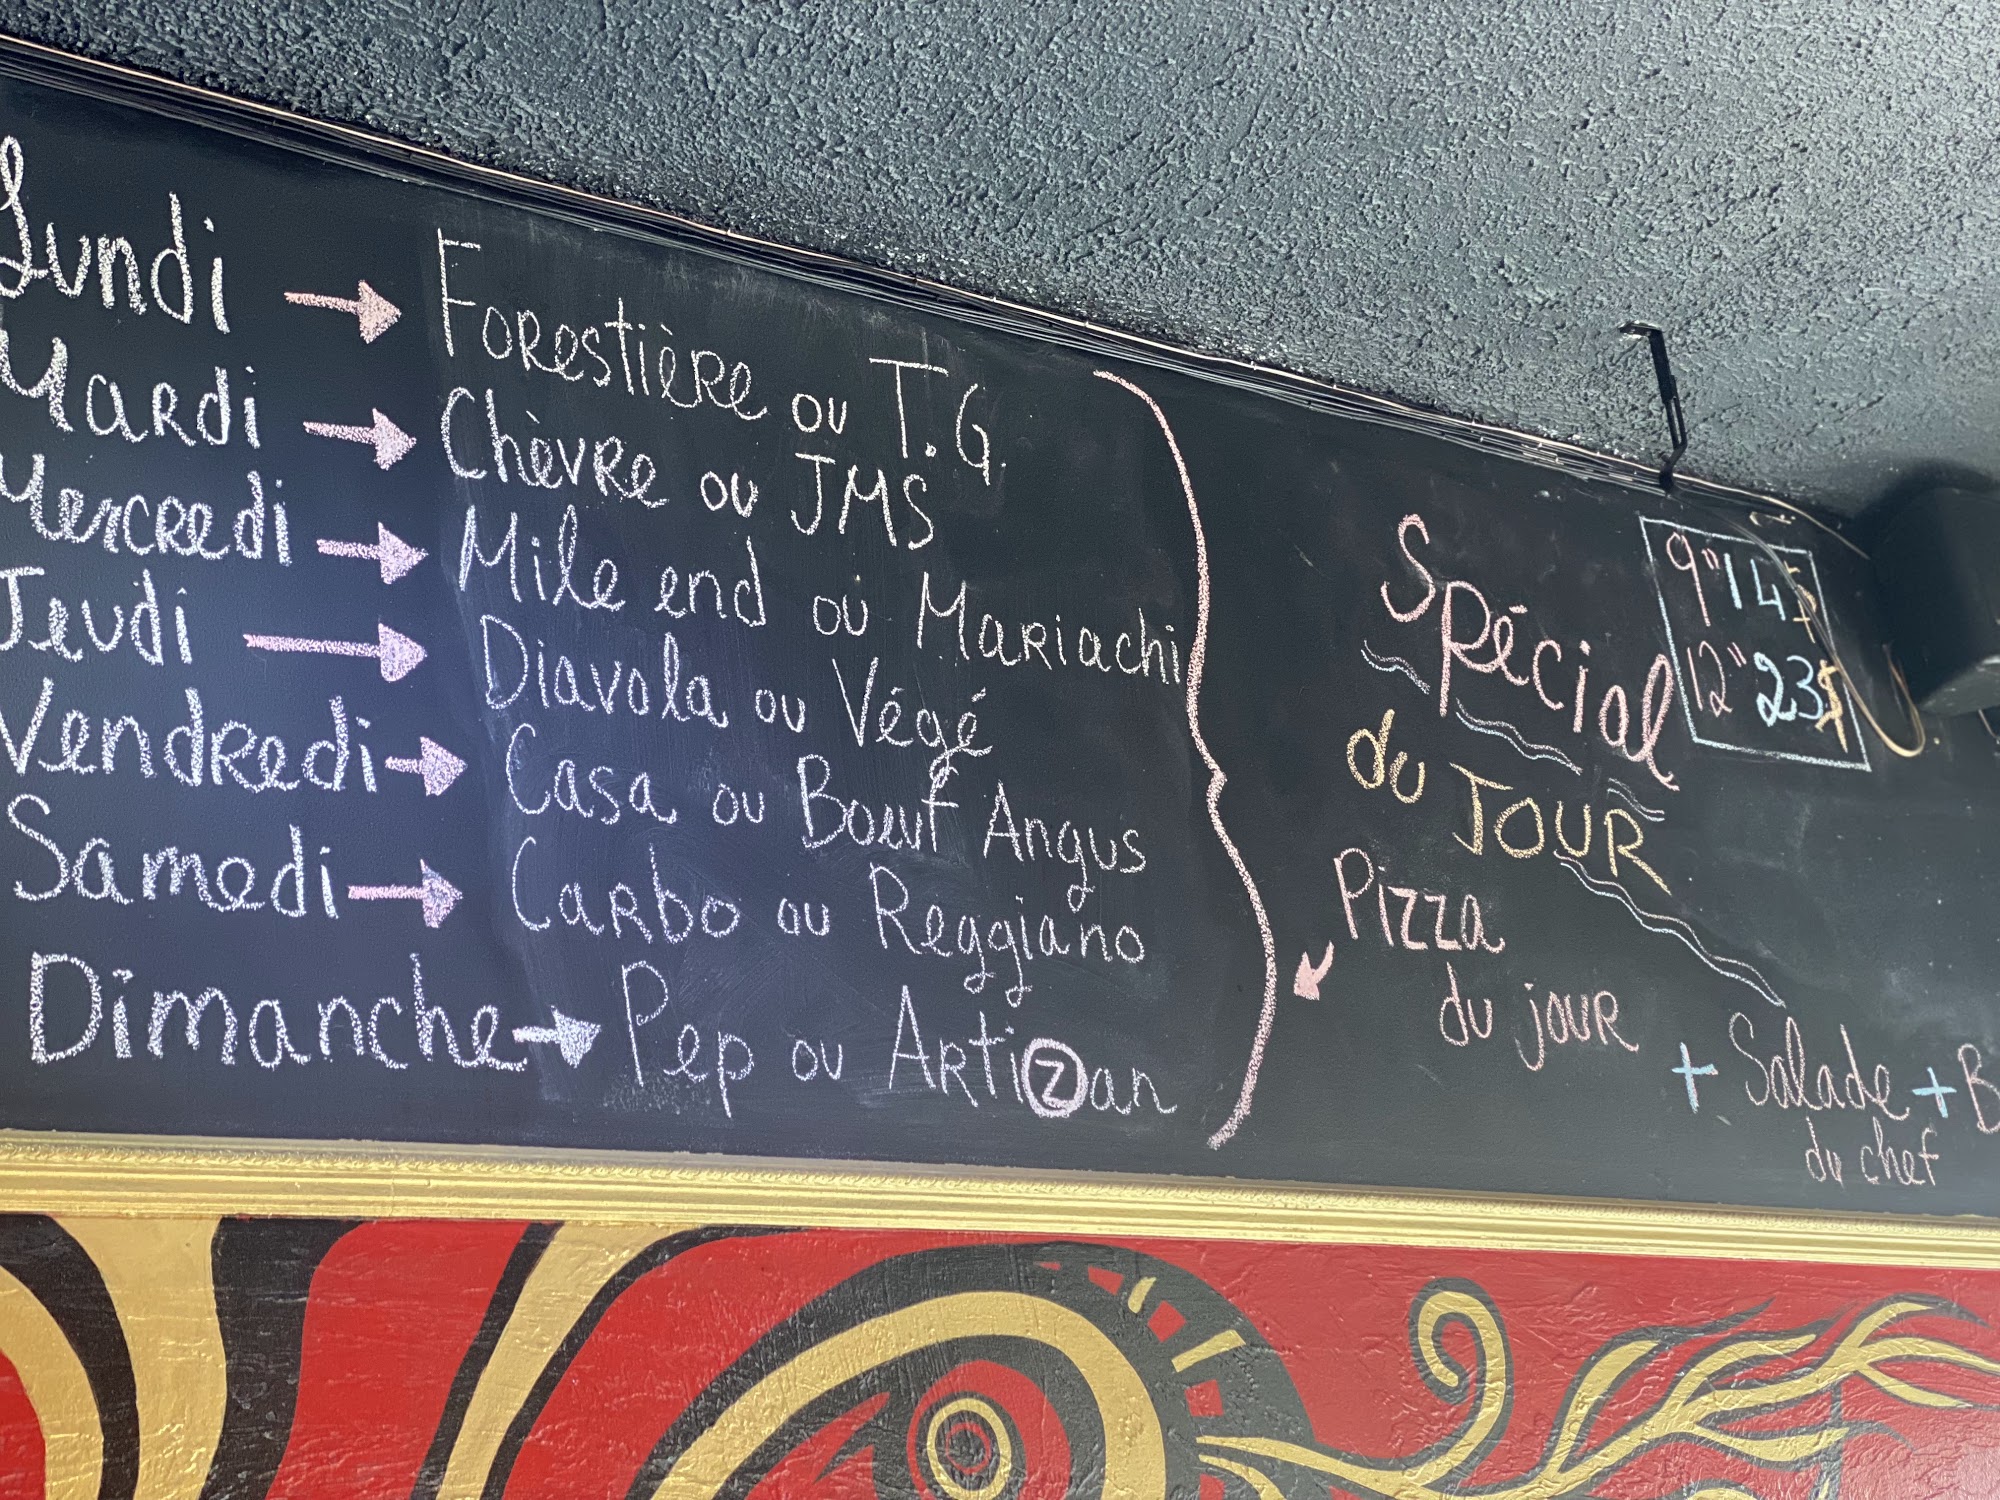 Lundi → Forestière ou T.G.
Mardi → Chèvre ou JMS
Mercredi → Mile end ou Mariachi
Jeudi → Diavola ou Végé
Vendredi → Casa ou Bœuf Angus
Samedi → Carbo ou Reggiano
Dimanche → Pep ou Artizan
Spécial
du JOUR
9" 14$
12" 23$
Pizza
du jour
+ Salade + B
du chef